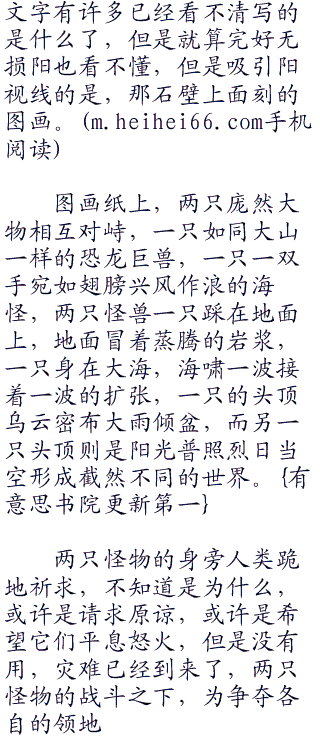 文字有许多已经看不清写的
是什么了，但是就算完好无
损阳也看不懂，但是吸引阳
视线的是，那石壁上面刻的
图画。(m.heihei66.com手机
阅读)
图画纸上，两只庞然大
物相互对峙，一只如同大山
一样的恐龙巨兽，一只一双
手宛如翅膀兴风作浪的海
怪，两只怪兽一只踩在地面
上，地面冒着蒸腾的岩浆，
一只身在大海，海啸一波接
着一波的扩张，一只的头顶
乌云密布大雨倾盆，而另一
只头顶则是阳光普照烈日当
空形成截然不同的世界。{有
意思书院更新第一}
两只怪物的身旁人类跪
地祈求，不知道是为什么，
或许是请求原谅，或许是希
望它们平息怒火，但是没有
用，灾难已经到来了，两只
怪物的战斗之下，为争夺各
自的领地